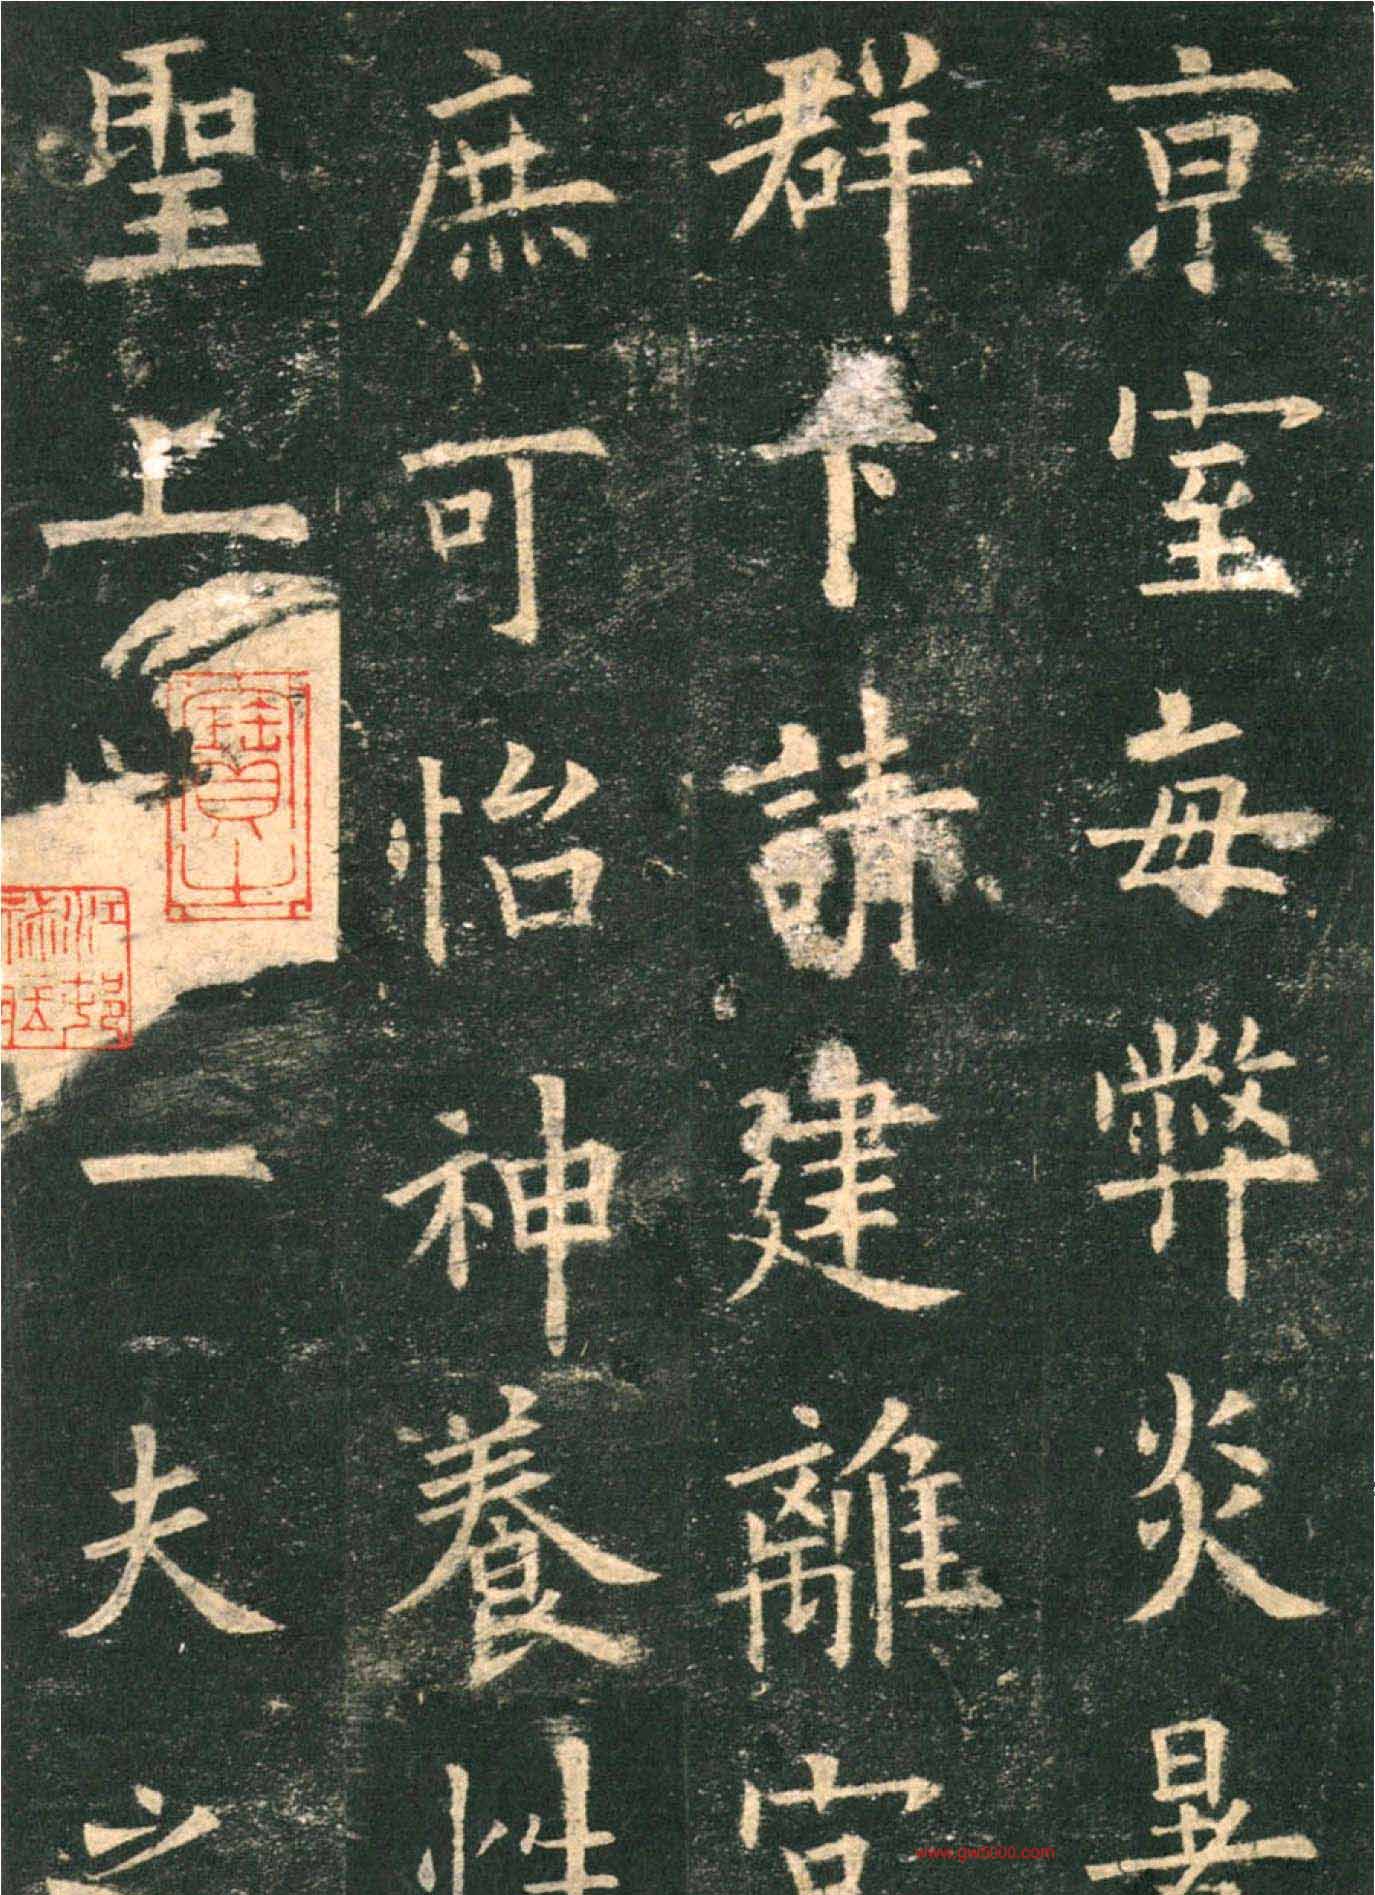 京室每弊炎暑
群下請建離宮
庶可怡神養性
聖上一夫之
www.gw5900.com